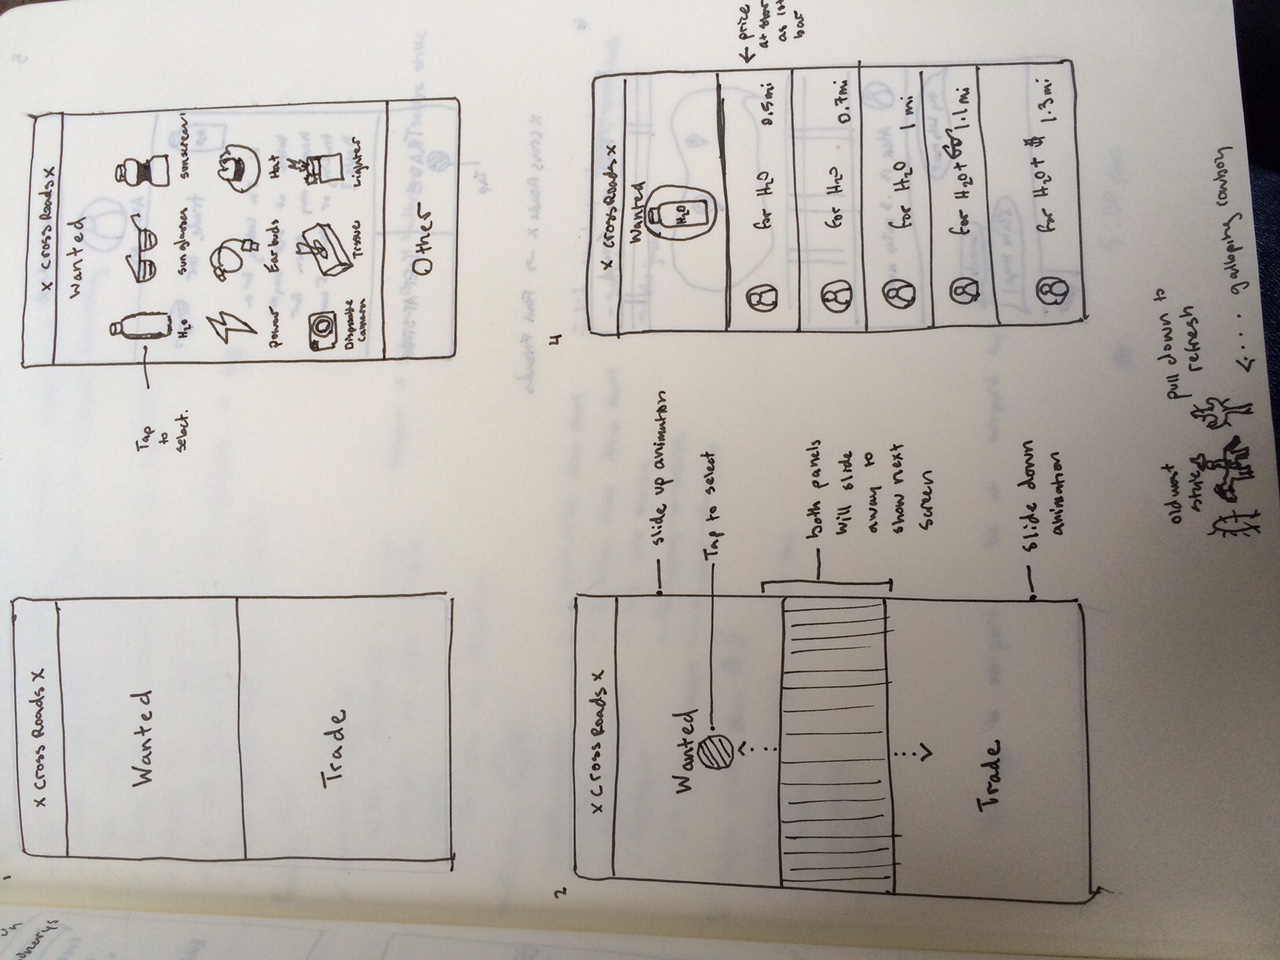 1
x Cross Roads x
Wanted
Trade
x Cross Roads x
Wanted
Tap
to
select.
H2O
sunglasses
sunscreen
power
Ear buds
Hat
Disposable
Camera
Tissue
Lighter
Other
2
x Cross Roads x
Wanted
slide up animation
Tap to select
both panels
will slide
away to
show next
screen
Trade
slide down
animation
4
x CrossRoads x
Wanted
H2O
for H2O 0.5mi
for H2O 0.7mi
for H2O 1 mi
for H2O + 1.1mi
for H2O + $ 1.3mi
← price
at
as 1st
bar
old west
style
pull down to
refresh
galloping cowboy